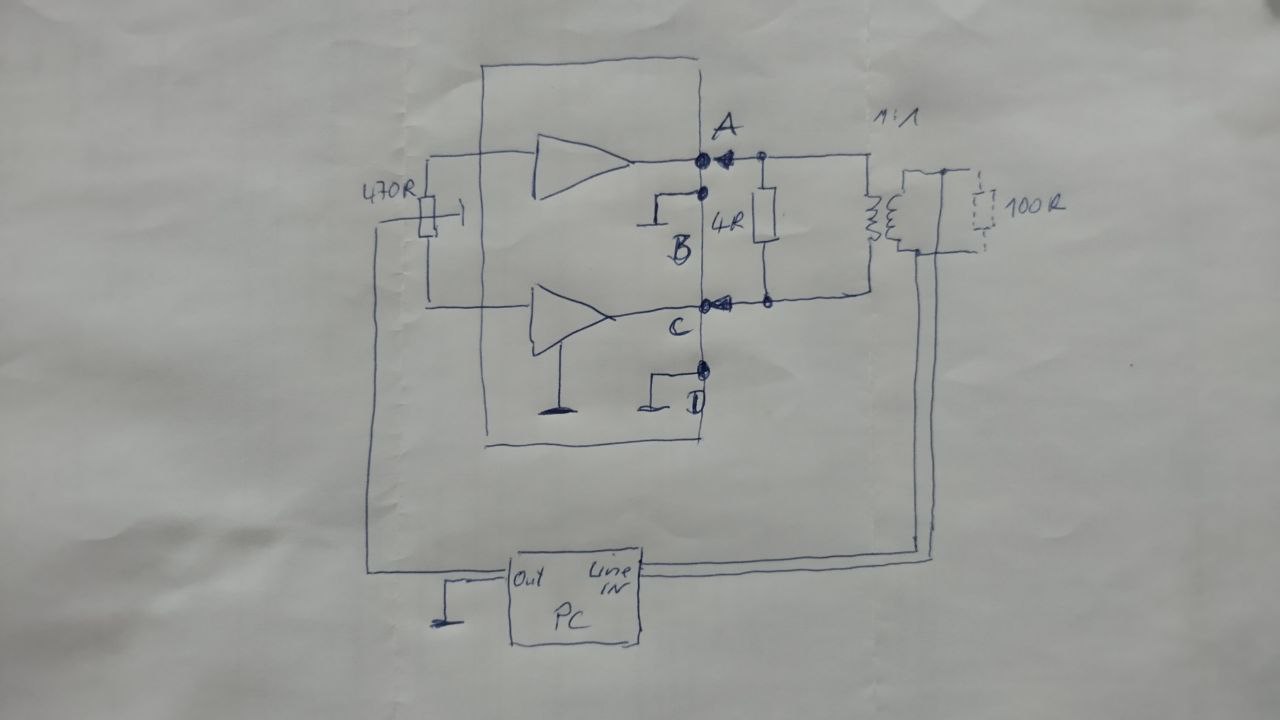 A
1:1
470R
100R
4R
B
C
D
Out
Line
IN
PC